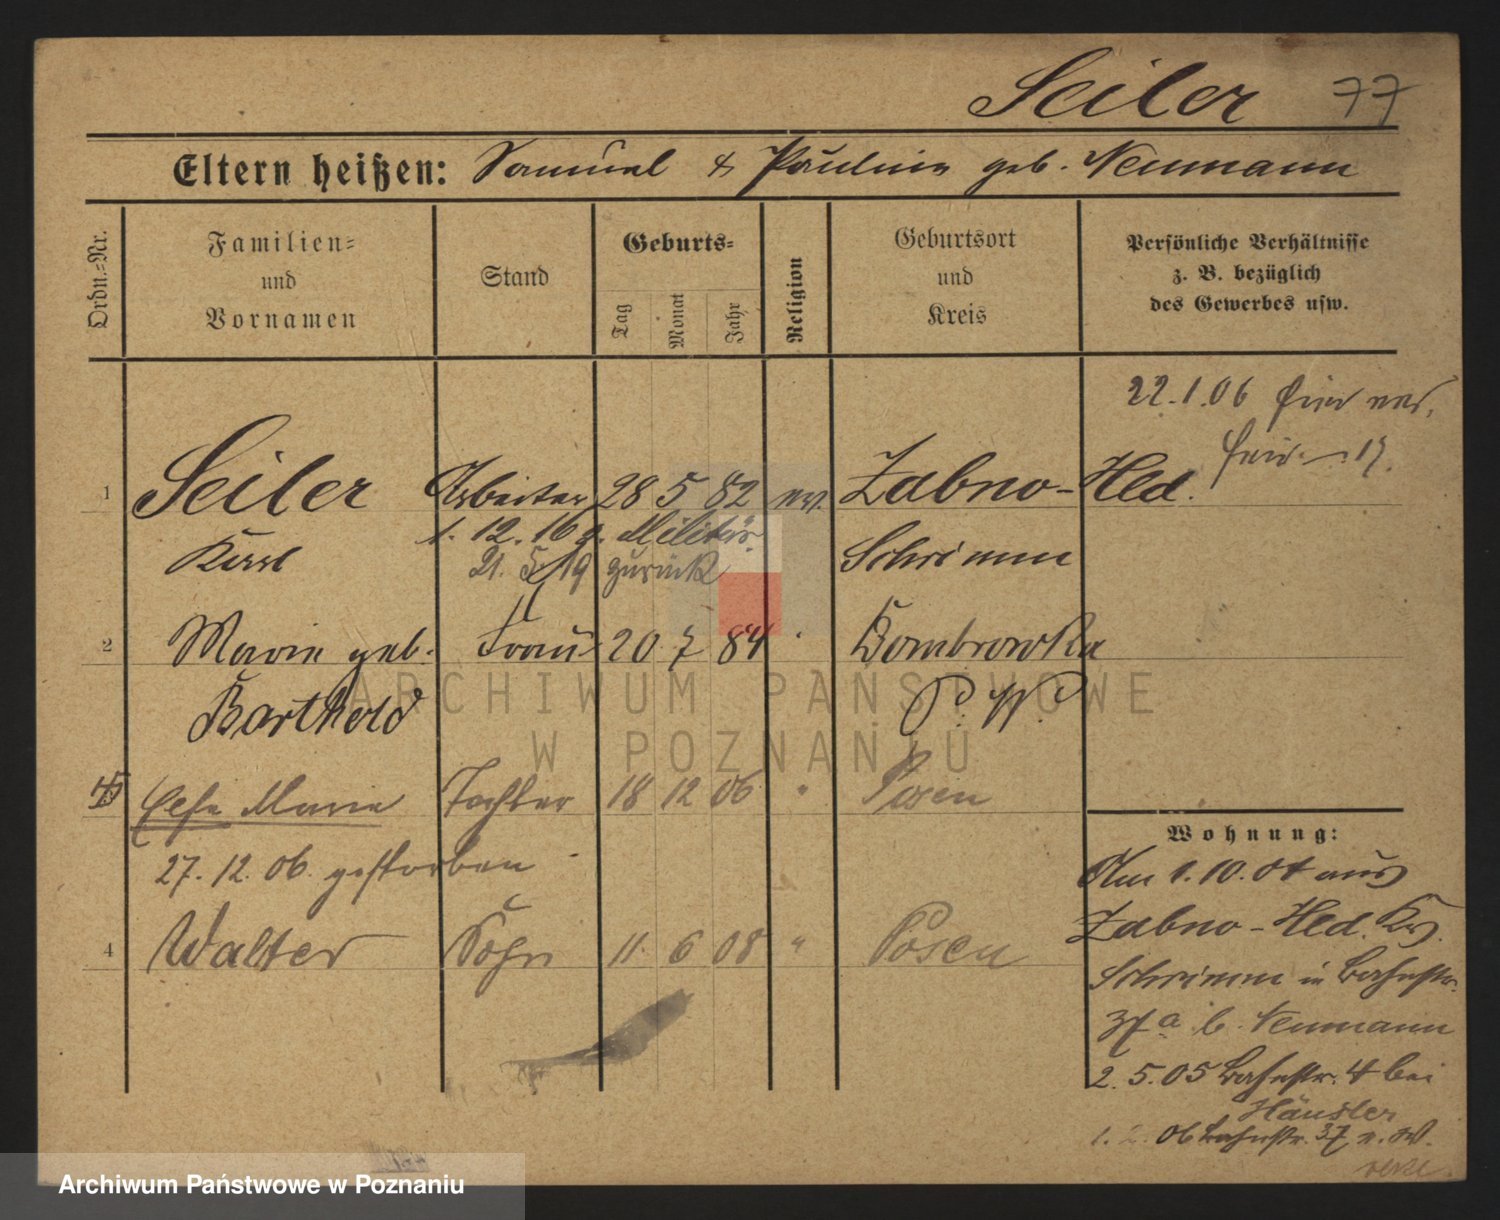 Seiler 77
Eltern heißen: Samuel & Pauline geb. Neumann
Ordn.=Nr.
Familien=
und
Vornamen
Stand
Geburts=
Tag
Monat
Jahr
Religion
Geburtsort
und
Kreis
Persönliche Verhältnisse
z. B. bezüglich
des Gewerbes usw.
22.1.06
1 Seiler Arbeiter 28 5 82 ev. Zabno-Hld.
1. 12. 16 z. Militär
Karl Schrimm
21. 5. 19 zurück
2 Marie geb. Frau 20 7 84 Dombrowka
Barthold
Else Marie Tochter 18 12 06 " Posen
27. 12. 06. gestorben
4 Walter Sohn 11. 6 08 " Posen
Wohnung:
Am 1. 10. 04 aus
Zabno-Hld. Kr.
Schrimm in Bahnstr.
37a b. Neumann
2. 5. 05 Bahnstr. 4 bei
Häusler
1. 2. 06 Bahnstr. 37
ARCHIWUM PAŃSTWOWE
W POZNANIU
Archiwum Państwowe w Poznaniu